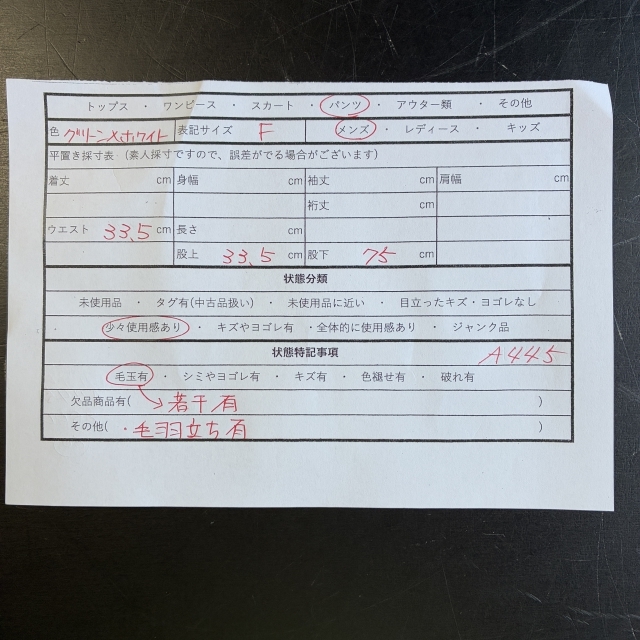 トップス ・ ワンピース ・ スカート ・ パンツ ・ アウター類 ・ その他
色 グリーン×ホワイト 表記サイズ F メンズ ・ レディース ・ キッズ
平置き採寸表 (素人採寸ですので、誤差がでる場合がございます)
着丈 cm 身幅 cm 袖丈 cm 肩幅 cm
裄丈 cm
ウエスト 33.5 cm 長さ cm
股上 33.5 cm 股下 75 cm
状態分類
未使用品 ・ タグ有(中古品扱い) ・ 未使用品に近い ・ 目立ったキズ・ヨゴレなし
・ 少々使用感あり ・ キズやヨゴレ有 ・全体的に使用感あり ・ ジャンク品
状態特記事項 A445
毛玉有 ・ シミやヨゴレ有 ・ キズ有 ・ 色褪せ有 ・ 破れ有
欠品商品有( →若干有 )
その他( ・毛羽立ち有 )